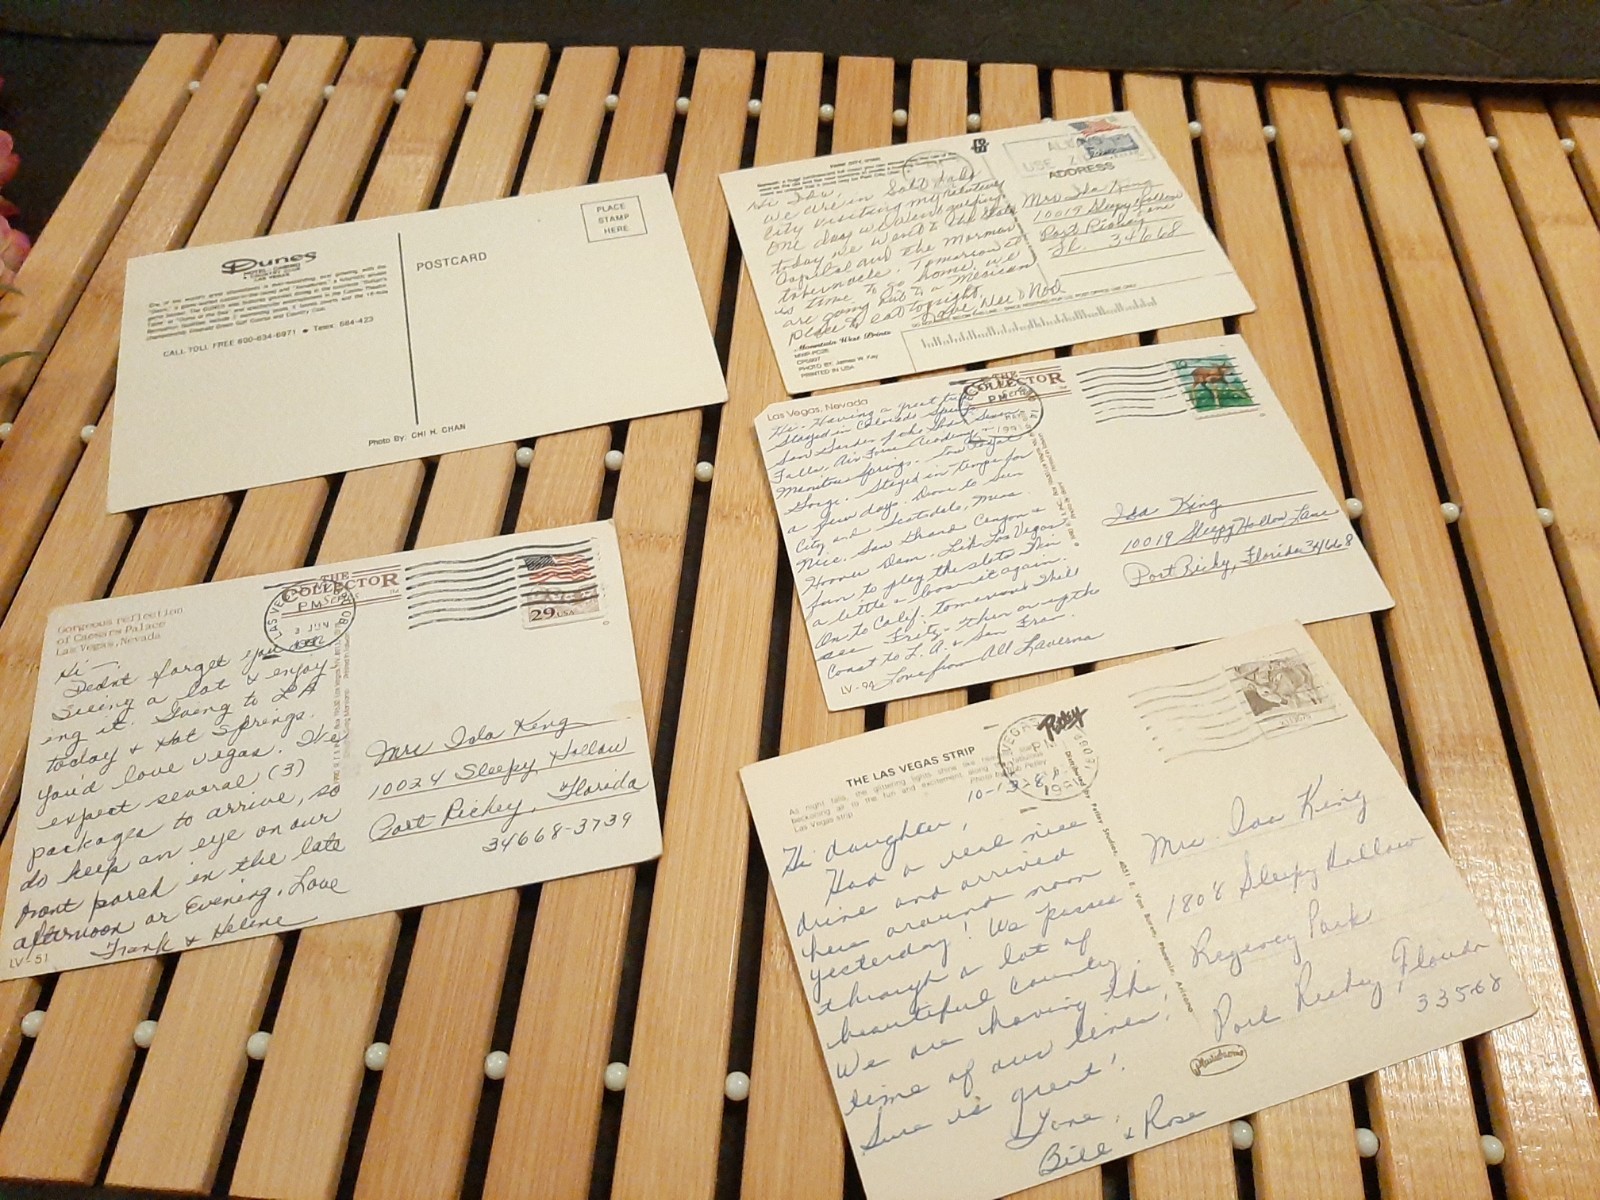 Dunes
HOTEL CASINO
& COUNTRY CLUB
LAS VEGAS
CALL TOLL FREE 800-634-6971 • Telex: 684-423
POSTCARD
PLACE
STAMP
HERE
Photo By: CHI H. CHAN
PARK CITY, UTAH
Hi Ida,
We are in Salt Lake
City visiting my relatives
One day we went
today we went to the State
Capital and the Mormon
tabernacle. Tomorrow it
is time to go home, we
are going out to a Mexican
place to eat tonight.
Mountain West Prints
PHOTO BY: James W. Kay
PRINTED IN USA
USE
ADDRESS
Mrs Ida King
10019 Sleepy Hollow
Lane
Port Richey
Fl. 34668
Las Vegas, Nevada
THE
COLLECTOR
Series
PM
Hi - Having a great
Stayed in Colorado
Saw Garden of the Gods, Seven
Falls, Air Force Academy
Manitou Springs. Saw Royal
Gorge. Stayed in Tempe for
a few days. Drove to Sun
City and Scotsdale,
Nice. Saw Grand Canyon &
Hoover Dam. Like Las Vegas
fun to play the slots. Win
a little & lose it again.
On to Calif. tomorrow. Will
see Fritz - then on up the
Coast to L.A. & San Fran.
Love from All Laverna
LV-94
Ida King
10019 Sleepy Hollow Lane
Port Richy, Florida 34668
Gorgeous reflection
of Caesars Palace
Las Vegas, Nevada
THE
COLLECTOR
Series
LAS VEGAS
PM
3 JUN
1992
29 USA
Hi
Didnt forget you are
Seeing a lot & enjoy
ing it. Going to LA
today & Hot Springs.
you'd love Vegas. We
expect several (3)
packages to arrive, so
do keep an eye on our
front porch in the late
afternoon or Evening. Love
Frank & Helene
LV-51
Mrs Ida King
10024 Sleepy Hollow
Port Richey, Florida
34668-3739
THE LAS VEGAS STRIP
As night falls, the glittering lights shine like
beckoning all to the fun and excitement along
Las Vegas strip
Petley
Distributed by Petley Studios, 4051 E. Van Buren, Phoenix, Arizona
Hi daughter,
Had a real nice
drive and arrived
here around noon
yesterday! We passed
through a lot of
beautiful country.
We are having the
time of our lives!
Sure is great!
Love,
Bill & Rose
Mrs. Ida King
1808 Sleepy Hollow
Regency Park
Port Richey, Florida
33568
Plastichrome